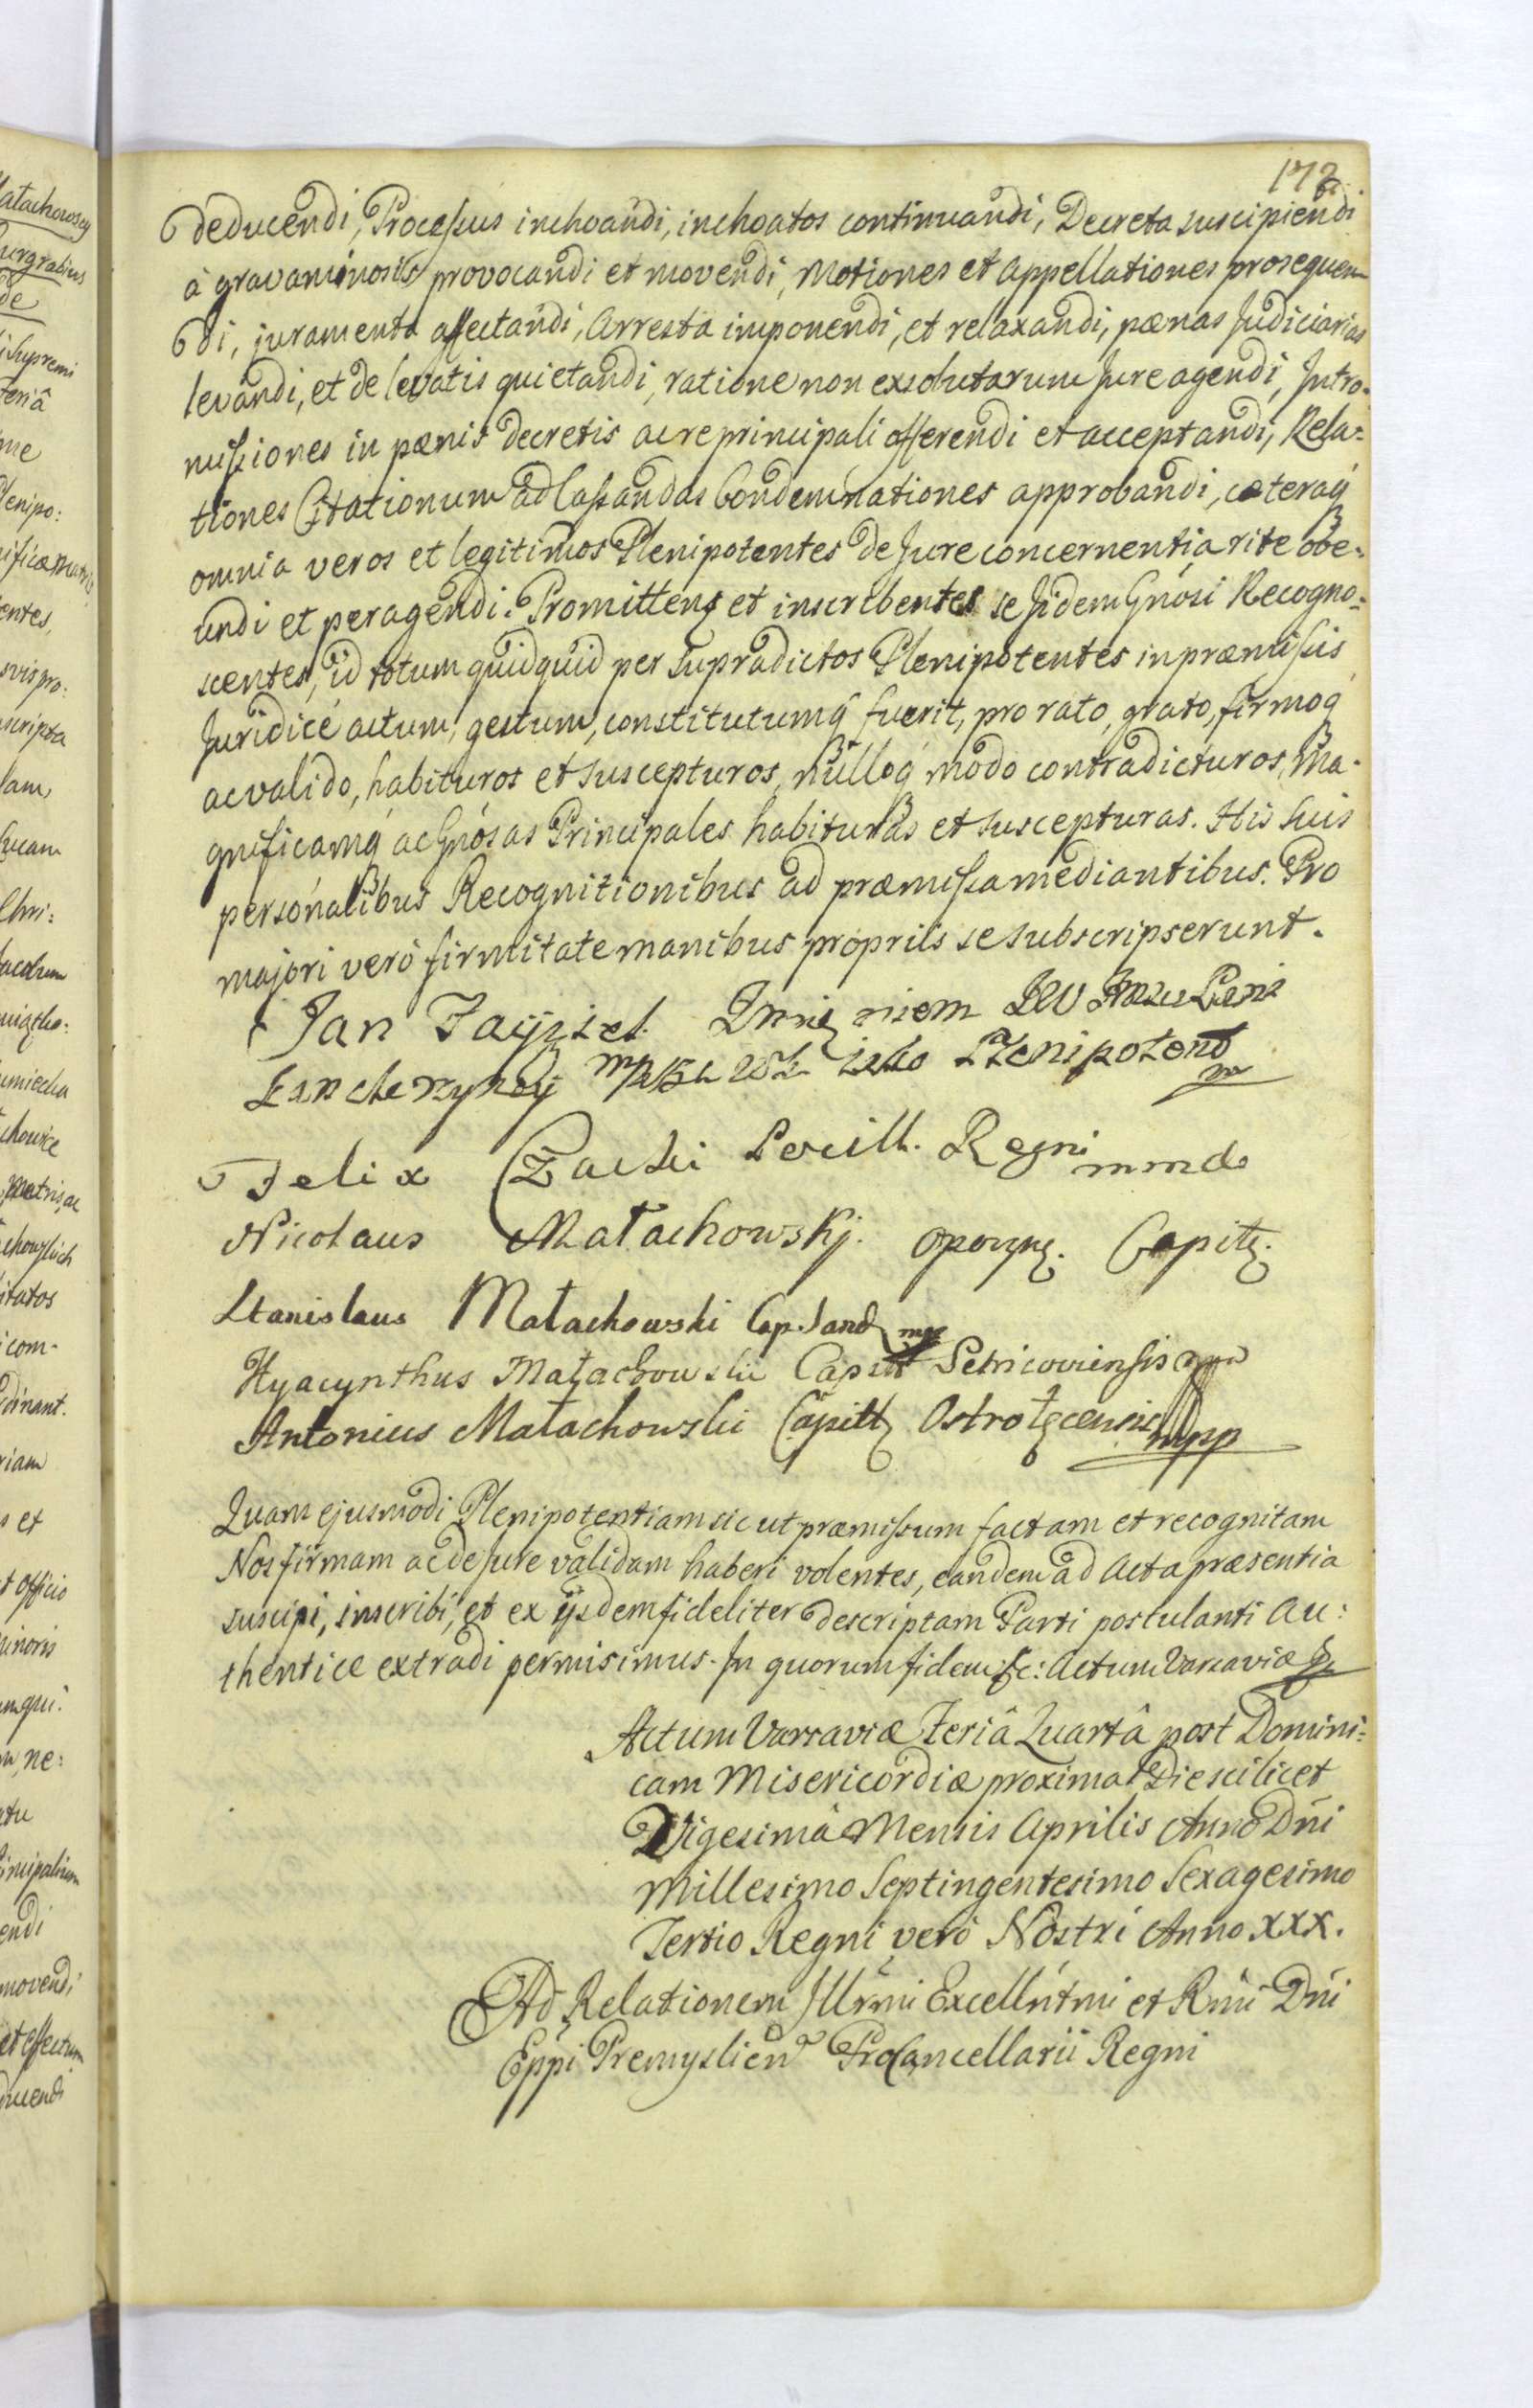 172
deducendi, Processus inchoandi, inchoatos continuandi, Decreta suscipiendi
à gravaminosis provocandi et movendi, Motiones et Appellationes prosequen
di, juramenta affectandi, Arresta imponendi, et relaxandi, pænas Judiciarias
levandi, et de levatis quietandi, ratione non exsolutarum Jure agendi, Intro-
missiones in pænis decretis ac re principali offerendi et acceptandi, Rela=
tiones Citationum ad Cassandas Condemnationes approbandi, cæteraq́
omnia veros et legitimos Plenipotentes de Jure concernentia rite obe=
undi et peragendi. Promittens et inscribentes se Jidem Gnósi Recogno=
scentes, id totum quidquid per supradictos Plenipotentes in præmissis
Juridicé actum, gestum, constitutumq́ fuerit, pro rato, grato, firmoq́
ac valido, habituros et suscepturos, nulloq́ modo contradicturos, Ma-
gnificamq́ ac Gnósas Principales habituras et suscepturas. His suis
personalibus Recognitionibus ad præmissa mediantibus. Pro
majori verò firmitate manibus proprils se subscripserunt.
Jan
Plenipotent
Felix Czacki Regni
Nicolaus Małachowskj. Opoczn. Capit.
Stanislaus Małachowski Cap. Sand mp
Hyacynthus Małachowski Capit Petricoviensis mp
Antonius Małachowski Capitt Ostrołęcensis mpp
Quam ejusmodi Plenipotentiam sic ut præmissum factam et recognitam
Nos firmam ac de Jure validam haberi volentes, eandem ad Acta præsentia
suscipi, inscribi, et ex ijsdem fideliter descriptam Parti postulanti Au:
thentice extradi permisimus. In quorum fidem &c: Actum Varsaviæ
Actum Varsaviæ Feriâ Quartâ post Domini=
cam Misericordiæ proximâ Die scilicet
Vigesimâ Mensis Aprilis Anno Dńi
Millesimo Septingentesimo Sexagesimo
Tertio Regni verò Nostri Anno XXX.
Ad Relationem Illrmi Excellńtmi et Rmi Dńi
Eppi Premyslien Procancellarii Regni